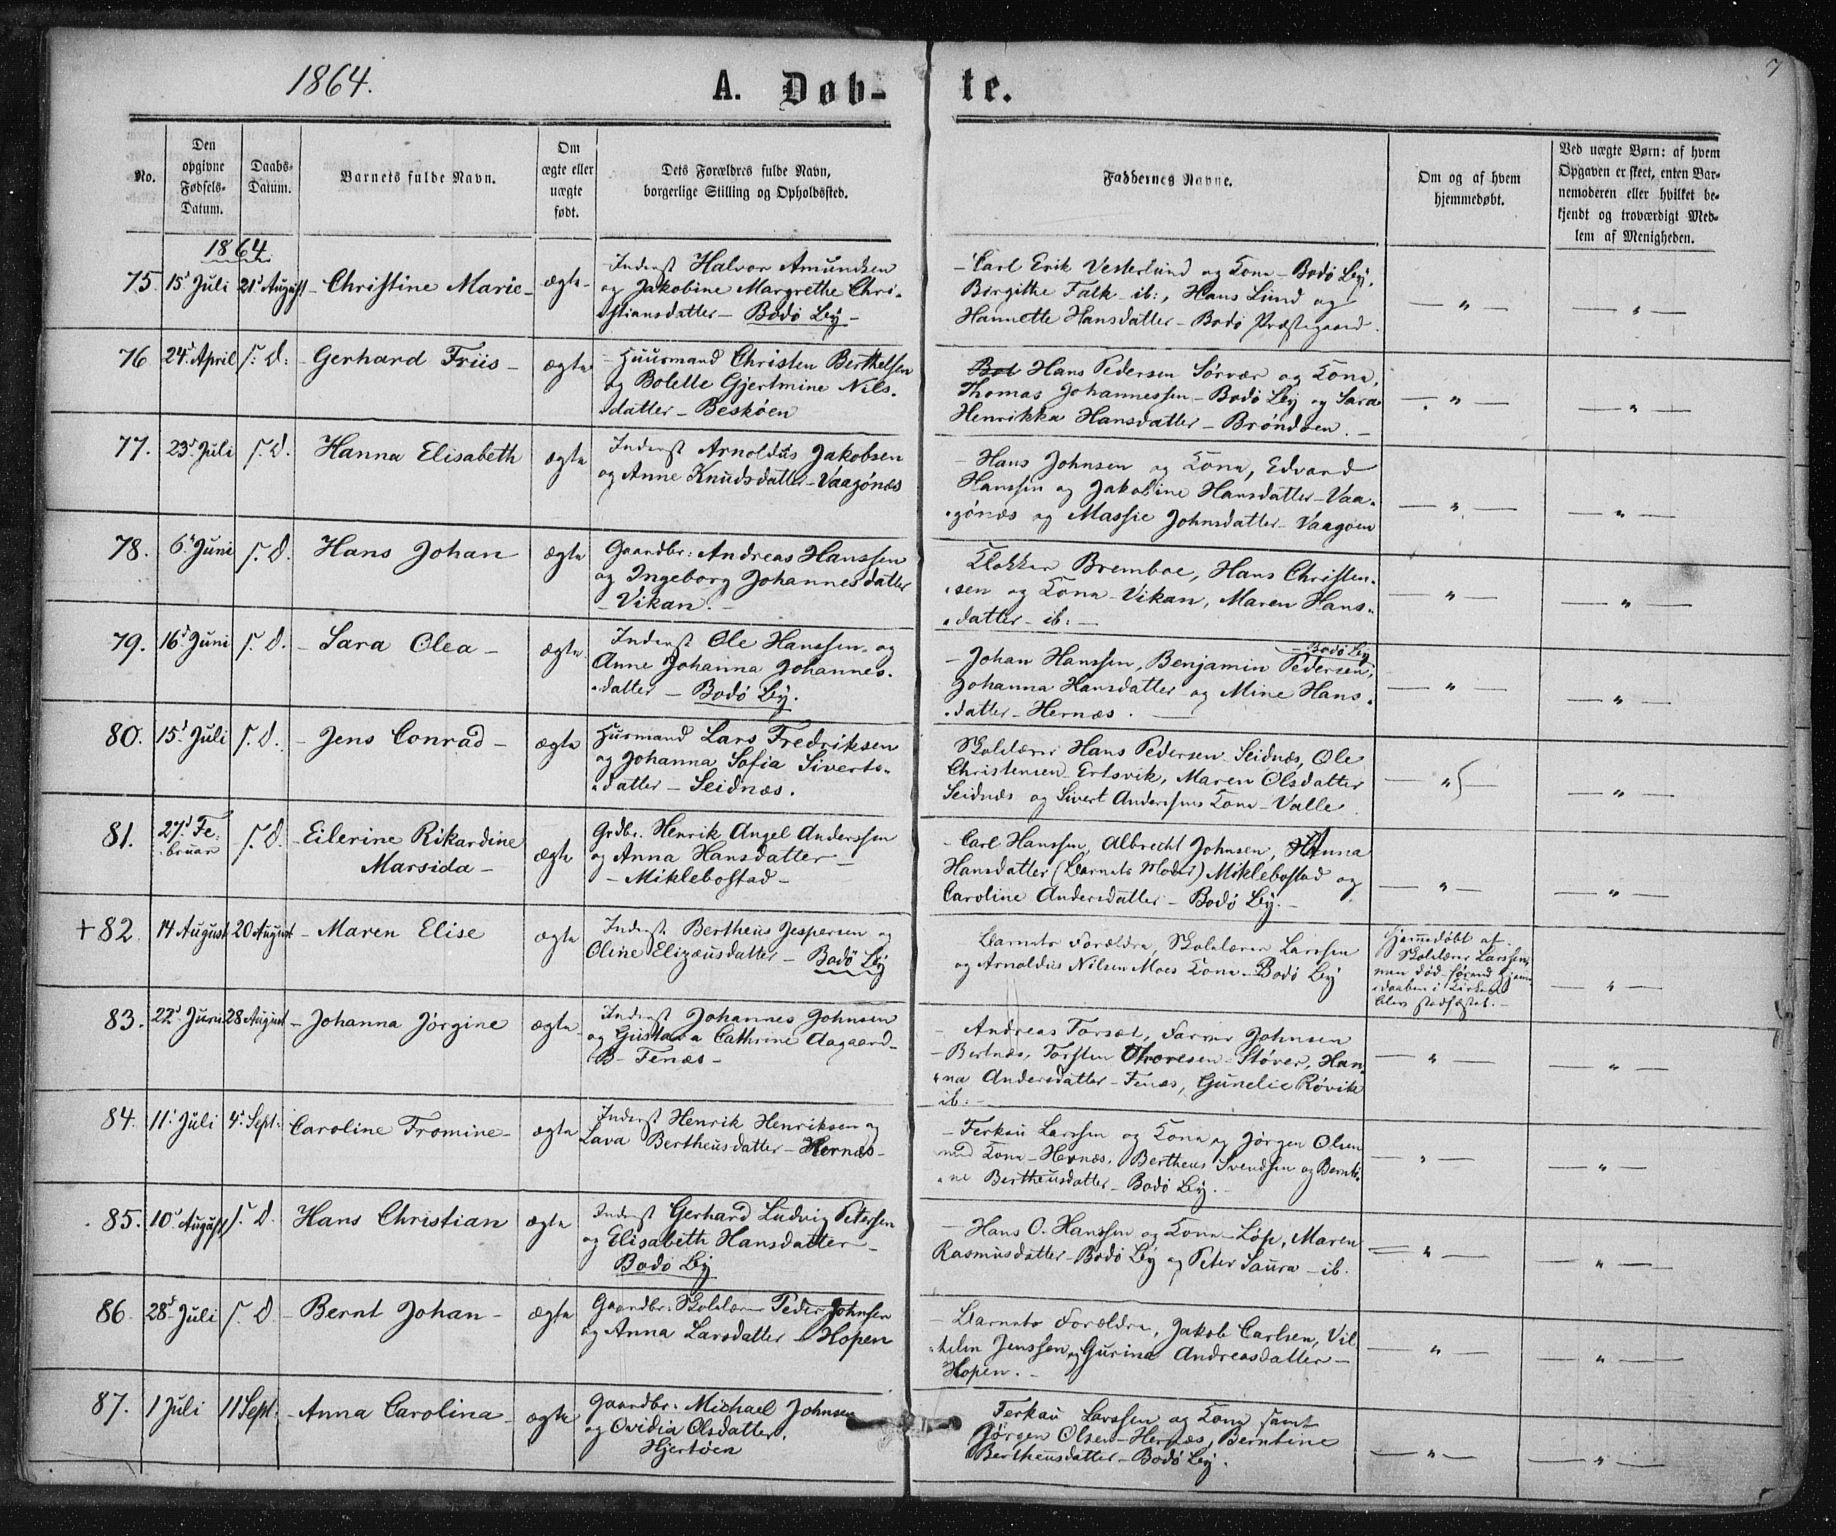 1864.
A. Døb-
te.
7
No.
Den opgivne Fødsels-Datum.
Daabs-Datum.
Barnets fulde Navn.
Om ægte eller uægte født.
Dets Forældres fulde Navn, borgerlige Stilling og Opholdssted.
Faddernes Navne.
Om og af hvem hjemmedøbt.
Ved uægte Børn: af hvem
Opgaven er skeet, enten Bar-
nemoderen eller hvilket be-
kjendt og troværdigt Med-
lem af Menigheden.
1864
75. 15' Juli 21' August - Christine Marie - ægte -
Inderst Halvor Amundsen
og Jakobine Margrethe Chri-
stiansdatter - Bodø By -
- Carl Erik Vesterlund og Kone - Bodø By,
Birgithe Falk - ib:, Hans Lund og
Hannette Hansdatter - Bodø Præstegaard.
— " —
— " —
76 24' April S: D: - Gerhard Friis - ægte
- Huusmand Christen Berthelsen
og Bolette Gjertmine Nils-
datter - Beskøen
Hans Pedersen Sørvær og Kone,
Thomas Johannessen - Bodø By og Sara
Henrikka Hansdatter - Brøndøen. -
— " —
— " —
77. 23' Juli S. D. Hanna Elisabeth ægte
Inderst Arnoldus Jakobsen
og Anne Knudsdatter - Vaagønæs
- Hans Johnsen og Kone, Edvard
Hanssen og Jakobine Hansdatter - Vaa-
gønæs og Massie Johnsdatter - Vaagøen
— " —
— " —
78. 6' Juni S. D. Hans Johan ægte
Gaardbr: Andreas Hanssen
og Ingeborg Johannesdatter
- Vikan. -
Klokker Bremboe, Hans Christen-
sen og Kone - Vikan, Maren Hans-
datter - ib: -
— " —
— " —
79. 16' Juni S. D. - Sara Olea - ægte
Inderst Ole Hanssen og
Anne Johanna Johannes-
datter - Bodø By.
- Bodø By
- Johan Hanssen, Benjamin Pedersen,
Johanna Hansdatter og Mine Hans-
datter - Hernæs. —
— " —
— " —
80. 15' Juli S. D. - Jens Conrad - ægte
Husmand Lars Fredriksen
og Johanna Sofia Siverts-
datter - Seidnæs.
Skolelærer Hans Pedersen Seidnæs, Ole
Christensen Ertsvik, Maren Olsdatter
Seidnæs og Sivert Anderssens Kone - Valle
— " —
— " —
81. 27' Fe-
bruar S. D. - Eilerine Rikardine
Marsida - ægte
Grdbr. Henrik Angel Anderssen
og Anna Hansdatter -
- Miklebostad -
- Carl Hanssen, Albrecht Johnsen, Anna
Hansdatter (Barnets Moder) Miklebostad og
Caroline Andersdatter - Bodø By. -
— " —
— " —
+ 82 14 August 20 August - Maren Elise ægte
Inderst Bertheus Jespersen og
Oline Elizæusdatter - Bodø By
Barnets Forældre, Skolelærer Larssen
og Arnoldus Nilsen Moes Kone - Bodø By
Hjemmedøbt af
Skolelærer Larssen,
men død førend Hjem-
medaaben i Kirken
blev stadfæstet. -
— " —
83. 22' Juni 28 August - Johanna Jørgine ægte
Inderst Johannes Johnsen
og Gustava Cathrine Aagaard -
B- Fenæs -
- Andreas Forsæt, Johnsen
- Bertnæs, Torsten Thoresen - Støver, Han-
na Andersdatter - Fenæs, Gunelie Røvik
ib: -
— " —
— " —
84. 11' Juli 4' Sept: Caroline Fromine - ægte
Inderst Henrik Henriksen og
Lava Bertheusdatter - Hernæs -
- Ferkau Larssen og Kone og Jørgen Olsen
med Kone - Hernæs, Bertheus Svendsen og Bernti-
ne Bertheusdatter - Bodø By. -
— " —
— " —
85. 10' August S. D. Hans Christian ægte
Inderst Gerhard Ludvig Petersen
og Elisabeth Hansdatter -
Bodø By
- Hans O. Hanssen og Kone - Løp, Maren
Rasmusdatter - Bodø By og Peter Saura - ib.
— " —
— " —
86 28' Juli S. D. - Bernt Johan - ægte
Gaardbr. Skolelærer Peder Johnsen
og Anna Larsdatter - Hopen
- Barnets Forældre, Jakob Carlsen, Vil-
helm Jenssen og Gurina Andreasdatter -
Hopen. -
— " —
— " —
87. 1 Juli 11 Sept. - Anna Carolina - ægte
Gaardbr. Michael Johnsen
og Ovidia Olsdatter,
Hjertøen
Ferkau Larssen og Kone samt
Jørgen Olsen - Hernæs, Berntine
Bertheusdatter - Bodø By.
— " —
— " —